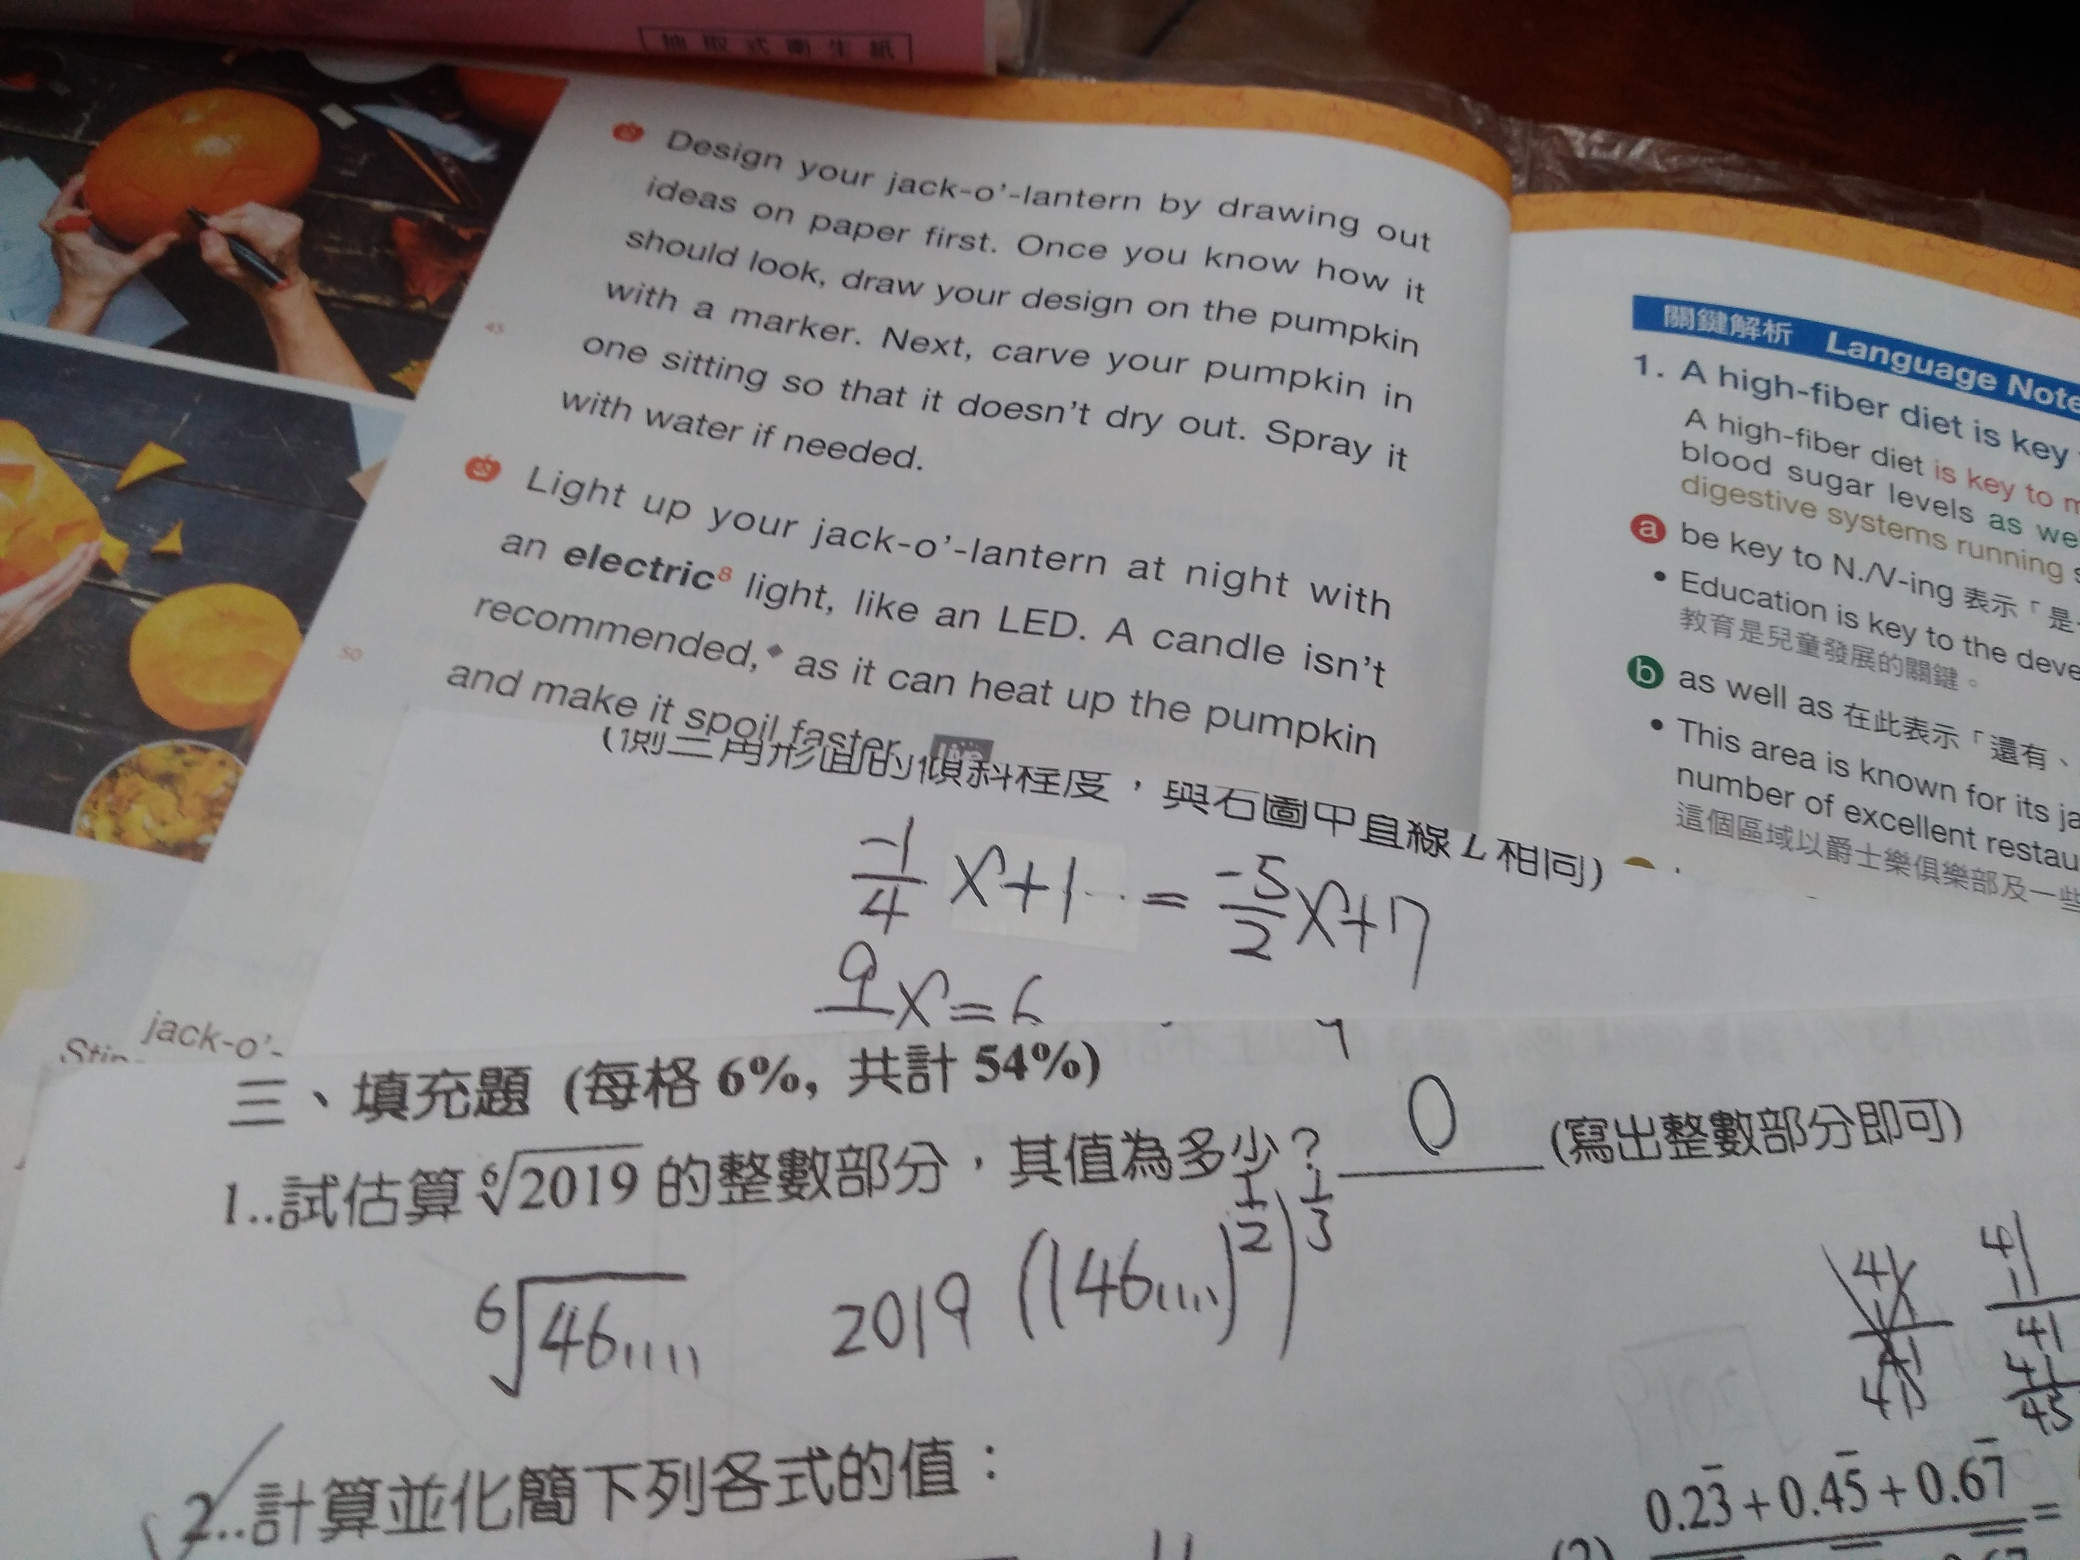 抽取式衛生紙
Design your jack-o'-lantern by drawing out
ideas on paper first. Once you know how it
should look, draw your design on the pumpkin
with a marker. Next, carve your pumpkin in
45
one sitting so that it doesn't dry out. Spray it
with water if needed.
Light up your jack-o'-lantern at night with
an electric8 light, like an LED. A candle isn't
recommended, as it can heat up the pumpkin
50
and make it spoil faster.
jack-o'-
關鍵解析 Language Note
1. A high-fiber diet is key
A high-fiber diet is key to
blood sugar levels as we
digestive systems running
a be key to N./V-ing 表示「是
• Education is key to the deve
教育是兒童發展的關鍵。
b as well as 在此表示「還有、
• This area is known for its ja
number of excellent restau
這個區域以爵士樂俱樂部及一些
(側三角形面的傾斜程度,與右圖中直線 L 相同)
-1/4 x+1 = -5/2 x+7
9 x=6
三、填充題 (每格 6%, 共計 54%)
1..試估算 ⁶√2019 的整數部分,其值為多少? 0 (寫出整數部分即可)
⁶√46..... 2019 ((46.....)^1/2)^1/3
41
11
41
41
45
2..計算並化簡下列各式的值:
0.23̅ + 0.45̅ + 0.67̅ =